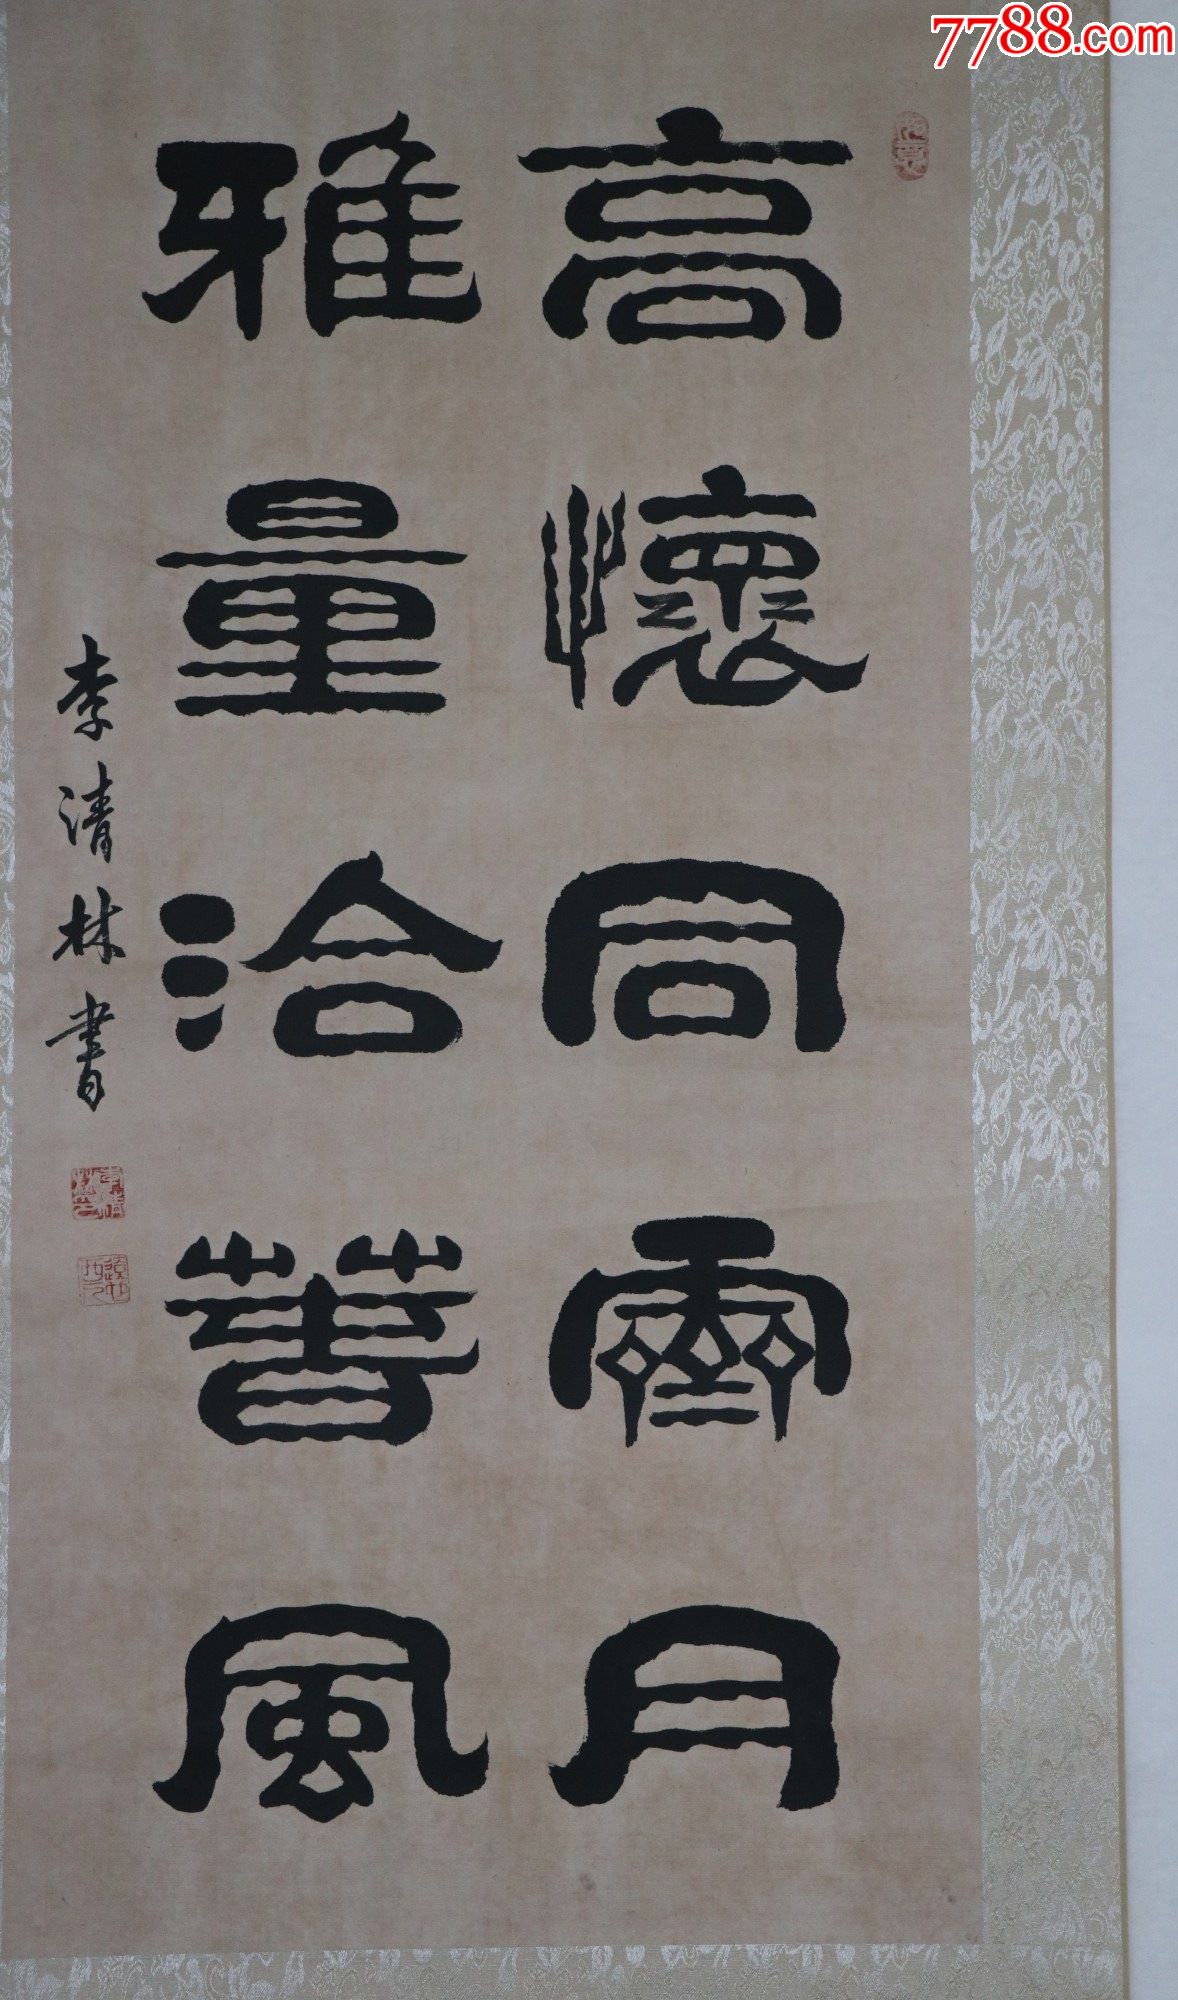 7788.com
高懷同霽月
雅量洽春風
李清林書